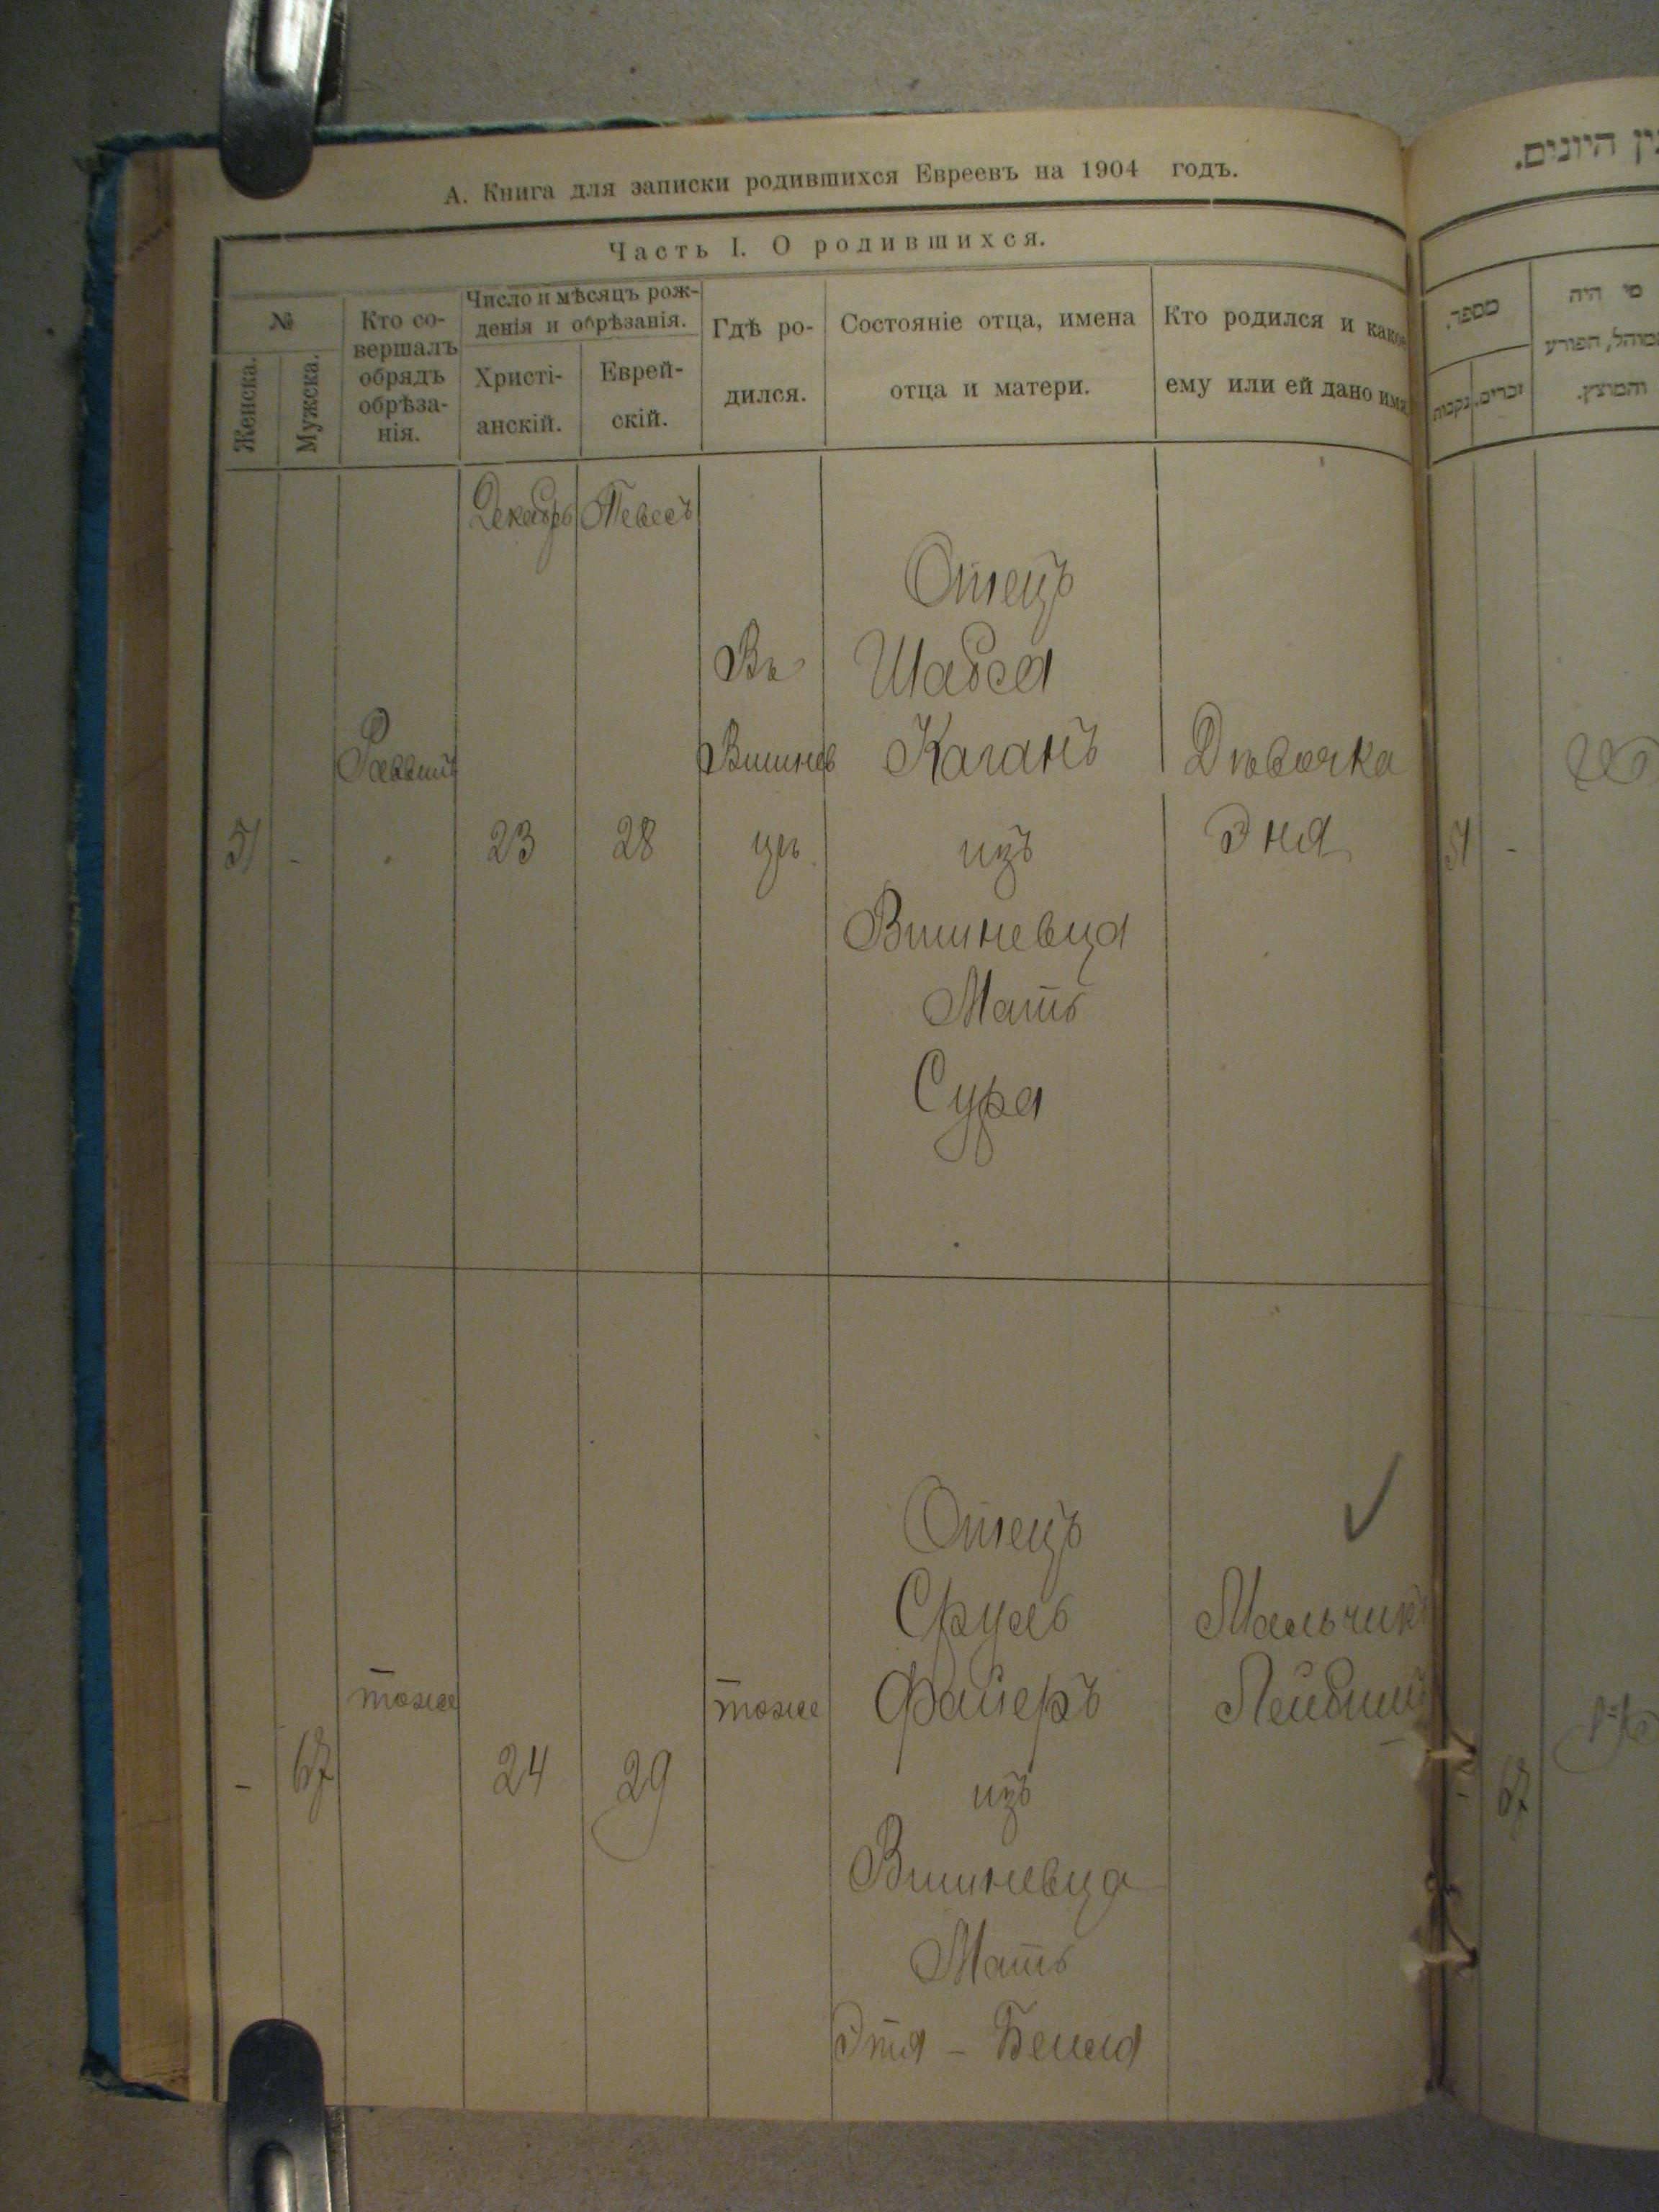 А. Книга для записки родившихся Евреевъ на 1904 годъ.
Часть I. О родившихся.
№
Женска.
Мужска.
Кто со-
вершалъ
обрядъ
обрѣза-
нія.
Число и мѣсяцъ рож-
денія и обрѣзанія.
Христі-
анскій.
Еврей-
скій.
Гдѣ ро-
дился.
Состояніе отца, имена
отца и матери.
Кто родился и какое
ему или ей дано имя
Декабрь
Тевесъ
51
-
Раввинъ
23
28
Въ
Вишнев
цѣ
Отецъ
Шабса
Каганъ
изъ
Вишневца
Мать
Сура
Дѣвочка
Эня
-
67
тоже
24
29
тоже
Отецъ
Сруль
Файеръ
изъ
Вишневца
Мать
Этя - Бейла
Мальчик
מספר.
נקבות
זכרים.
מי היה
המוהל, הפורע
והמוצץ.
51
-
67